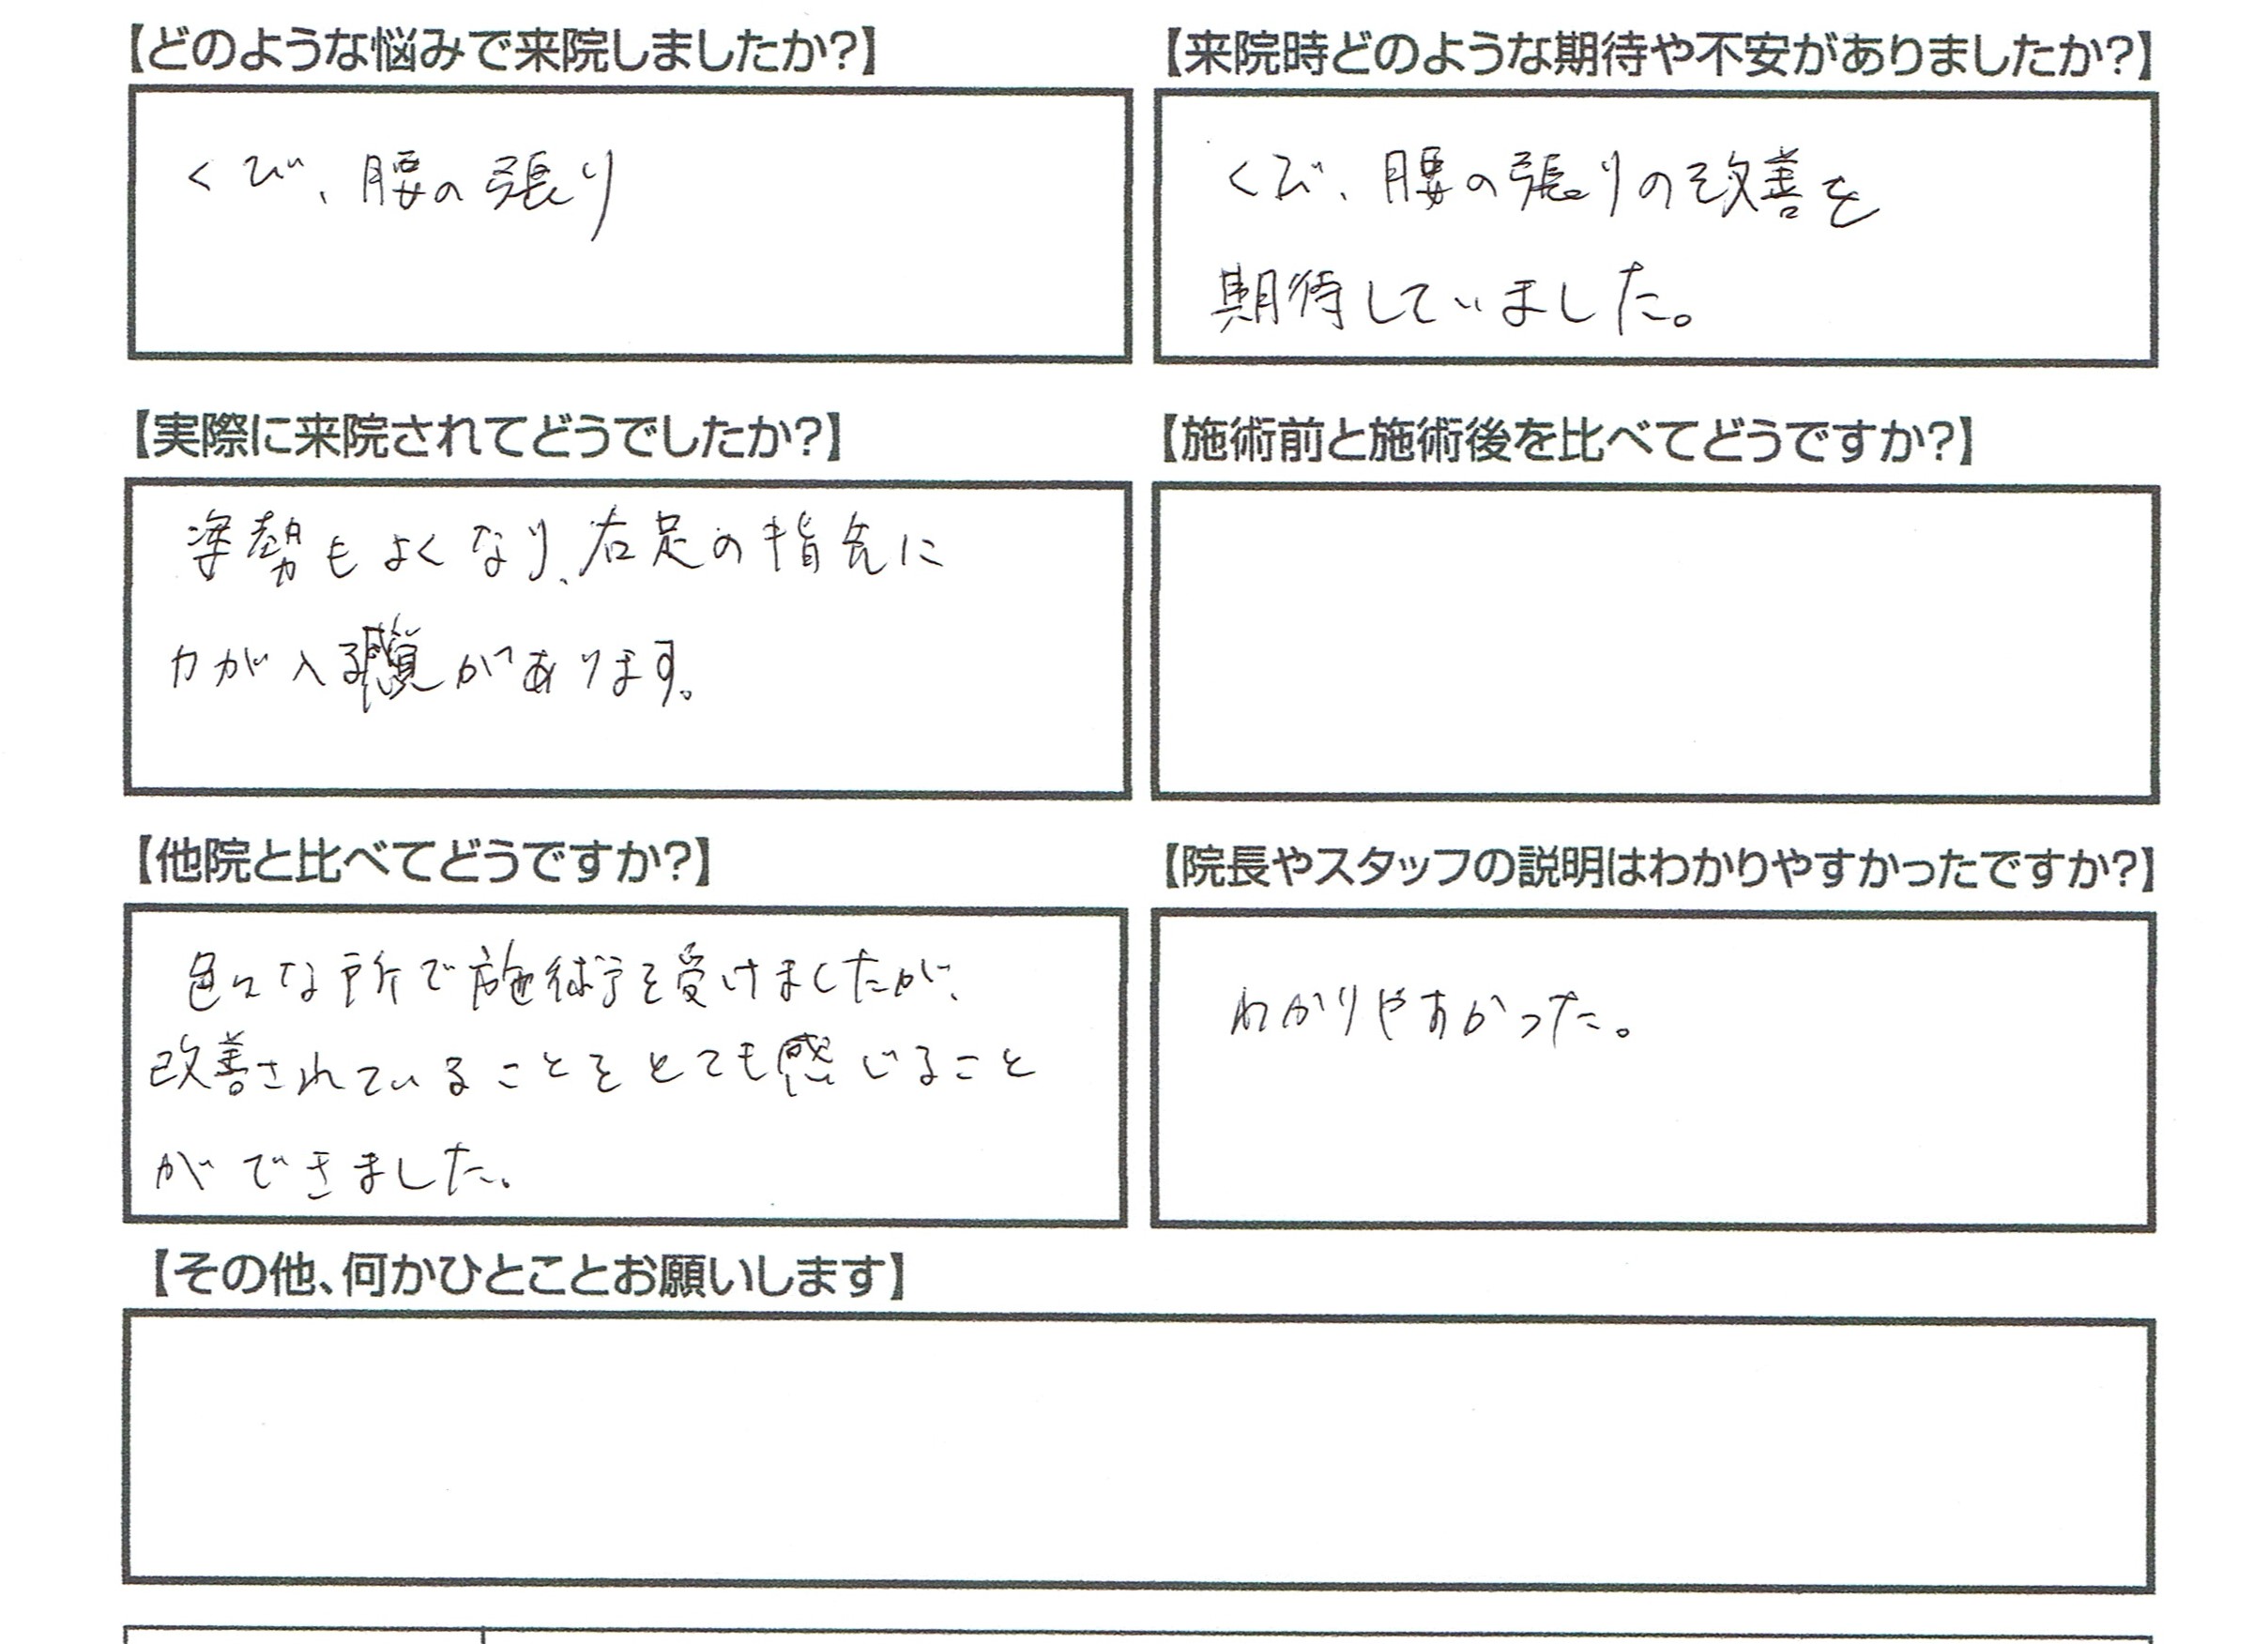 【どのような悩みで来院しましたか?】
くび、腰の張り
【来院時どのような期待や不安がありましたか?】
くび、腰の張りの改善を
期待していました。
【実際に来院されてどうでしたか?】
姿勢もよくなり、右足の指先に
力が入る感覚があります。
【施術前と施術後を比べてどうですか?】
【他院と比べてどうですか?】
色々な所で施術を受けましたが、
改善されていることをとても感じること
ができました。
【院長やスタッフの説明はわかりやすかったですか?】
わかりやすかった。
【その他、何かひとことお願いします】